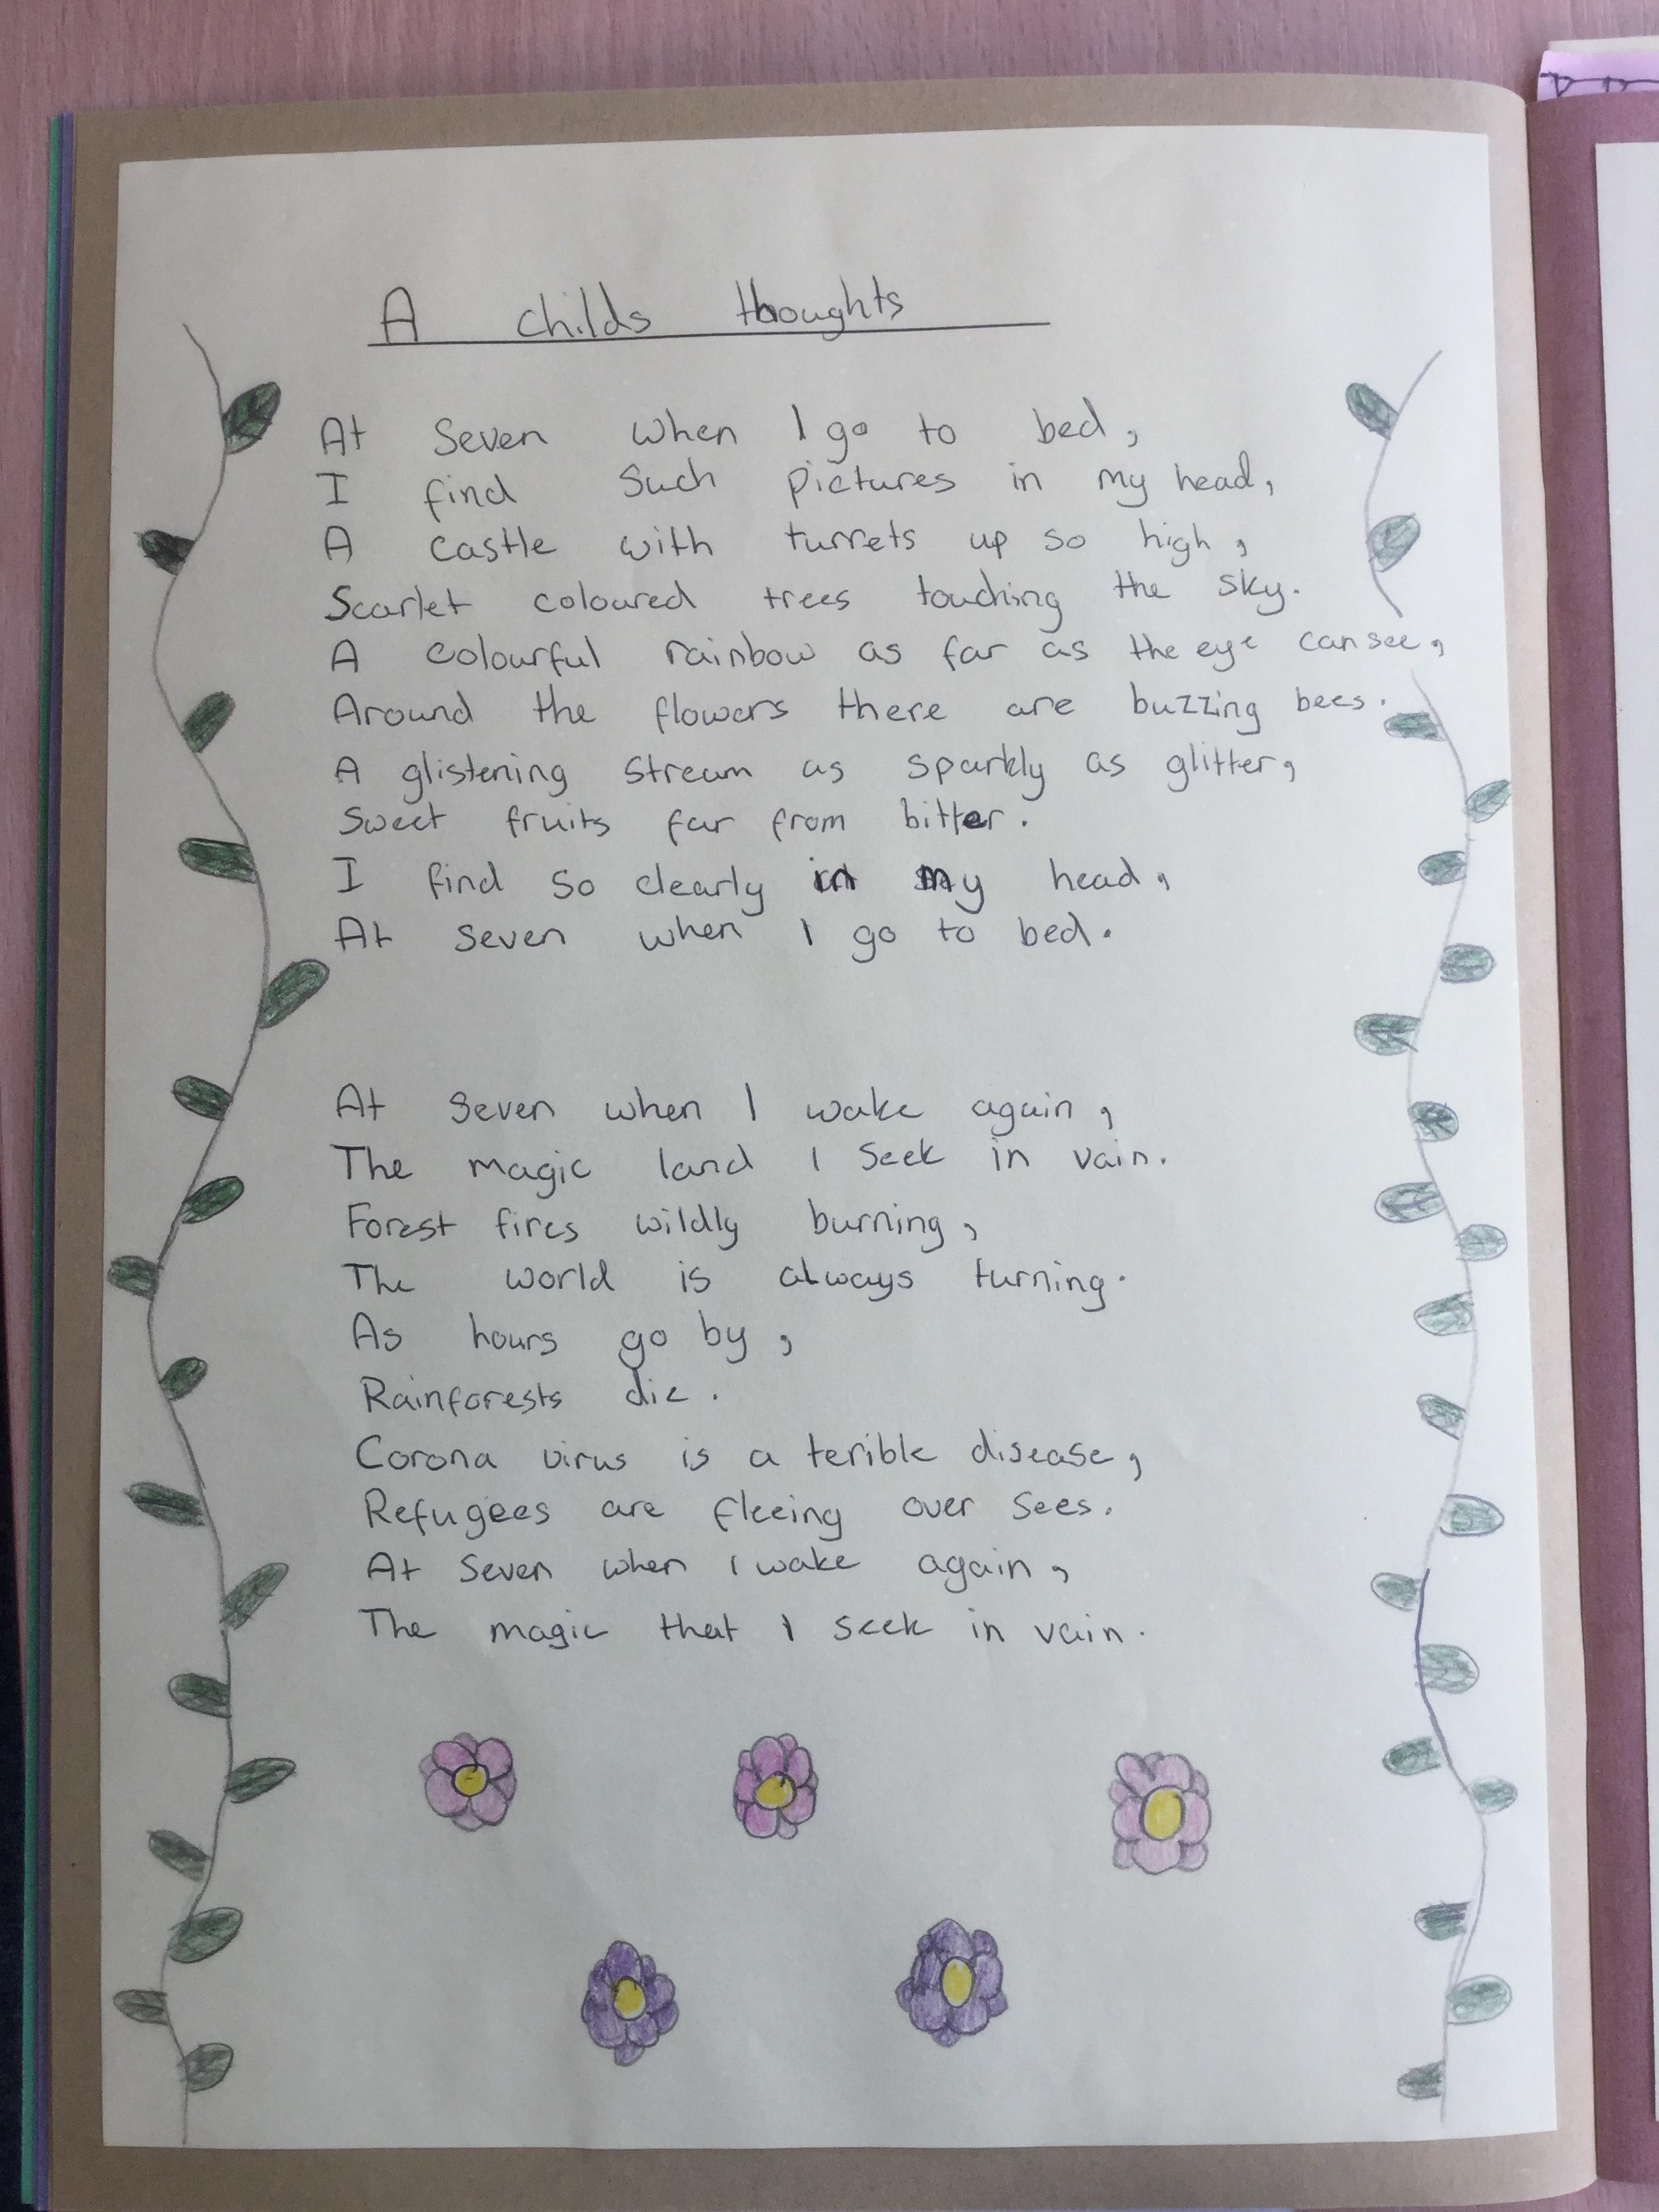 A childs thoughts
At seven when I go to bed,
I find such pictures in my head,
A castle with turrets up so high,
Scarlet coloured trees touching the sky.
A colourful rainbow as far as the eye can see,
Around the flowers there are buzzing bees.
A glistening stream as sparkly as glitter,
Sweet fruits far from bitter.
I find so clearly in my head,
At seven when I go to bed.
At seven when I wake again,
The magic land I seek in vain.
Forest fires wildly burning,
The world is always turning.
As hours go by,
Rainforests die.
Corona virus is a terible disease,
Refugees are fleeing over sees.
At seven when I wake again,
The magic that I seek in vain.